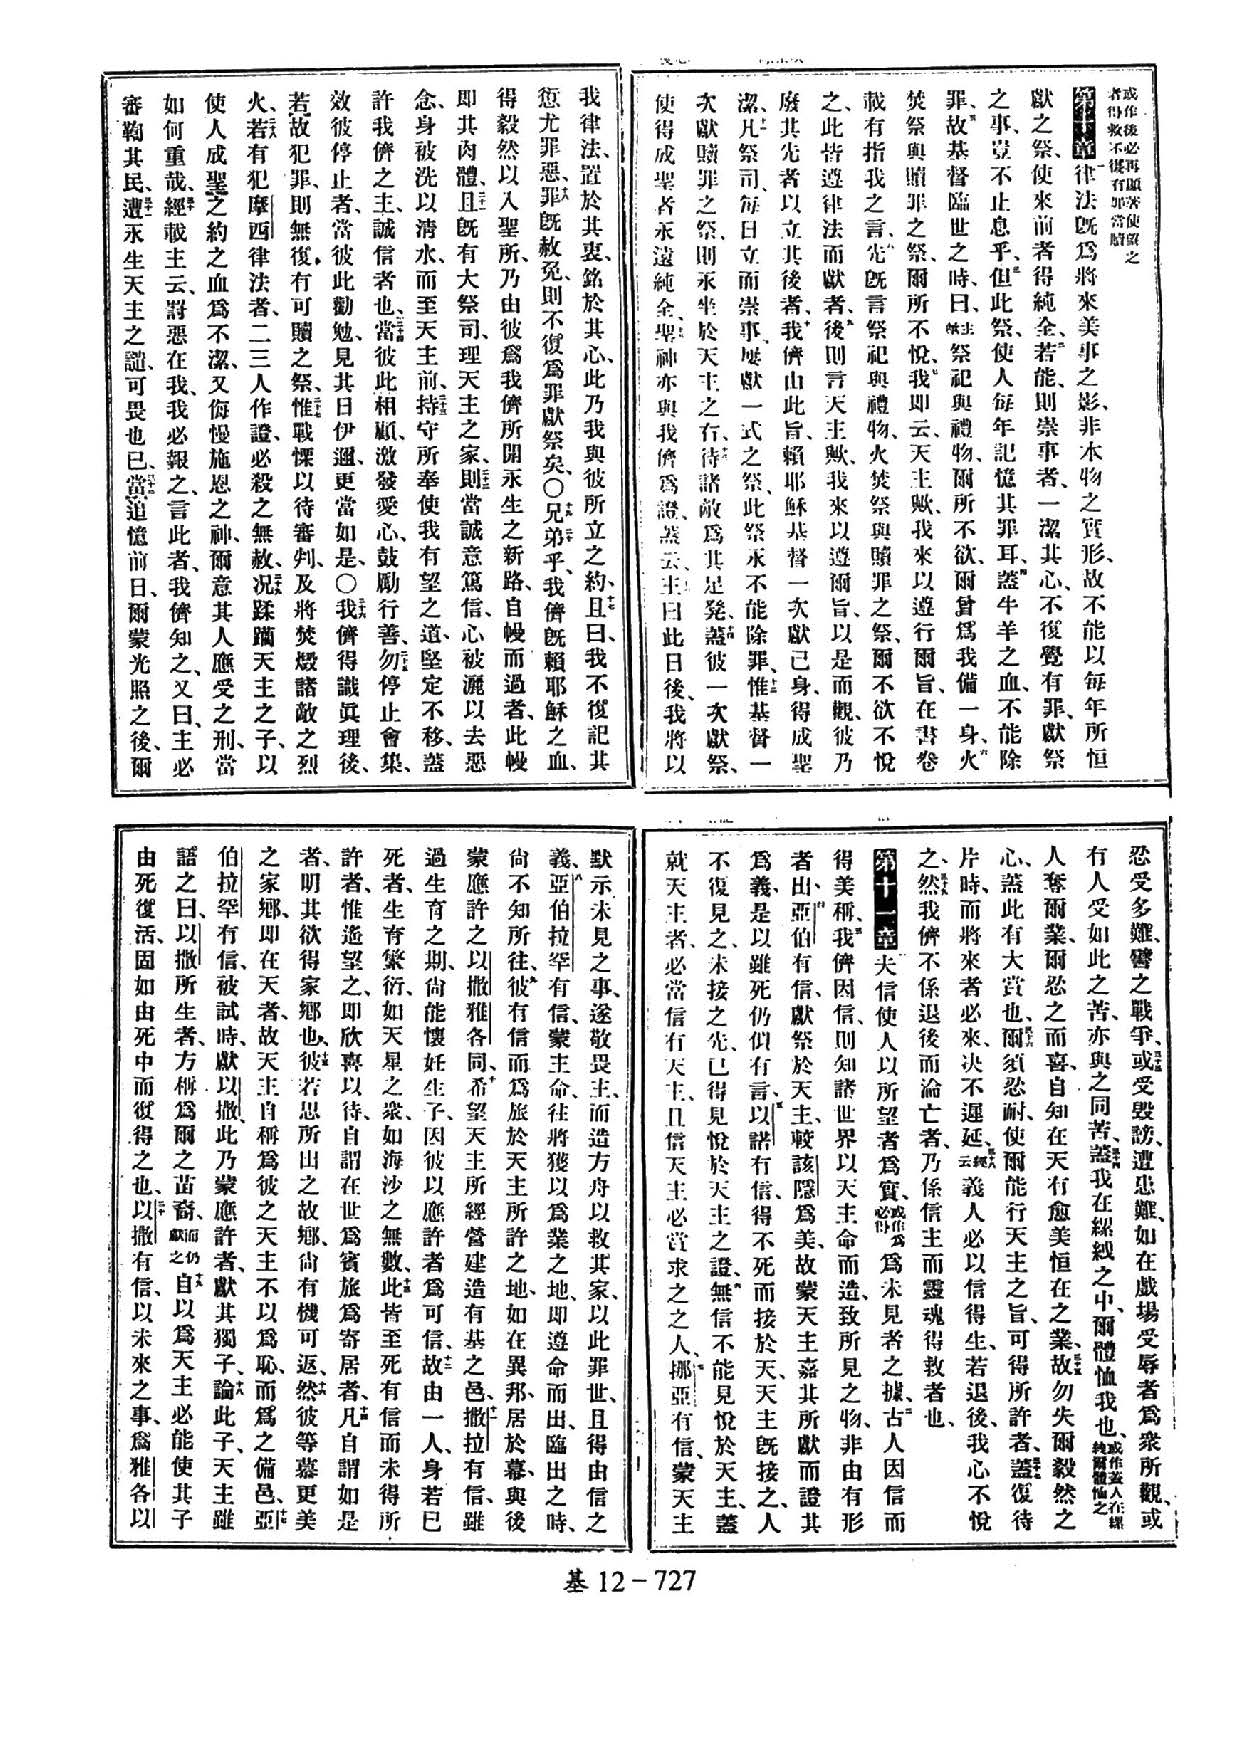 或作後必再顯著使望之
者得救不復有罪當贖
第十章一律法旣爲將來美事之影、非本物之實形、故不能以每年所恒
獻之祭、使來前者得純全、二若能、則崇事者、一潔其心、不復覺有罪、獻祭
之事、豈不止息乎、三但此祭、使人每年記憶其罪耳、四蓋牛羊之血、不能除
罪、五故基督臨世之時、曰、主歟祭祀與禮物、爾所不欲、爾曾爲我備一身、六火
焚祭與贖罪之祭、爾所不悅、七我即云、天主歟、我來以遵行爾旨、在書卷
載有指我之言、八先旣言祭祀與禮物、火焚祭與贖罪之祭、爾不欲不悅
之、此皆遵律法而獻者、九後則言天主歟、我來以遵爾旨、以是而觀、彼乃
廢其先者、以立其後者、十我儕由此旨、賴耶穌基督一次獻己身、得成聖
潔、十一凡祭司、每日立而崇事、屢獻一式之祭、此祭永不能除罪、十二惟基督一
次獻贖罪之祭、則永坐於天主之右、十三待諸敵爲其足凳、十四蓋彼一次獻祭、
使得成聖者永遠純全、十五聖神亦與我儕爲證、蓋云、十六主曰、此日後、我將以
我律法、置於其衷、銘於其心、此乃我與彼所立之約、十七且曰、我不復記其
愆尤罪惡、十八罪旣赦免、則不復爲罪獻祭矣、〇十九兄弟乎、我儕旣賴耶穌之血、
得毅然以入聖所、二十乃由彼爲我儕所開永生之新路、自幔而過者、此幔
即其肉體、二十一且旣有大祭司、理天主之家、二十二則當誠意篤信、心被灑以去惡
念、身被洗以清水、而至天主前、二十三持守所奉使我有望之道、堅定不移、蓋
許我儕之主、誠信者也、二十四當彼此相顧、激發愛心、鼓勵行善、二十五勿停止會集、
效彼停止者、當彼此勸勉、見其日伊邇、更當如是、〇二十六我儕得識眞理後、
若故犯罪、則無復有可贖之祭、二十七惟戰慄以待審判、及將焚燬諸敵之烈
火、二十八若有犯摩西律法者、二三人作證、必殺之無赦、二十九况蹂躪天主之子、以
使人成聖之約之血爲不潔、又侮慢施恩之神、爾意其人應受之刑、當
如何重哉、三十經載主云、罸惡在我、我必報之、言此者、我儕知之、又曰、主必
審鞫其民、三十一遭永生天主之譴、可畏也已、三十二當追憶前日、爾蒙光照之後、爾
忍受多難、譬之戰爭、三十三或受毀謗、遭患難、如在戲場受辱者爲衆所觀、或
有人受如此之苦、亦與之同苦、三十四蓋我在縲絏之中、爾體恤我也、或作蓋人在縲絏爾體恤之
人奪爾業、爾忍之而喜、自知在天有愈美恒在之業、三十五故勿失爾毅然之
心、蓋此有大賞也、三十六爾須忍耐、使爾能行天主之旨、可得所許者、三十七蓋復待
片時、而將來者必來、决不遲延、三十八經云義人必以信得生、若退後、我心不悅
之、三十九然我儕不係退後而淪亡者、乃係信主而靈魂得救者也、
第十一章夫信使人以所望者爲實、或作爲必得爲未見者之據、二古人因信而
得美稱、三我儕因信、則知諸世界以天主命而造、致所見之物、非由有形
者出、四亞伯有信、獻祭於天主、較該隱爲美、故蒙天主嘉其所獻而證其
爲義、是以雖死仍似有言、五以諾有信、得不死而接於天、天主旣接之、人
不復見之、未接之先、已得見悅於天主之證、六無信不能見悅於天主、蓋
就天主者、必當信有天主、且信天主必賞求之之人、七挪亞有信、蒙天主
默示未見之事、遂敬畏主、而造方舟以救其家、以此罪世、且得由信之
義、八亞伯拉罕有信、蒙主命、往將獲以爲業之地、即遵命而出、臨出之時、
尙不知所往、九彼有信而爲旅於天主所許之地、如在異邦、居於幕、與後
蒙應許之以撒雅各同、十希望天主所經營建造有基之邑、十一撒拉有信、雖
過生育之期、尙能懷妊生子、因彼以應許者爲可信、十二故由一人、身若已
死者、生育繁衍、如天星之衆、如海沙之無數、十三此皆至死有信而未得所
許者、惟遙望之、即欣喜以待、自謂在世爲賓旅、爲寄居者、十四凡自謂如是
者、明其欲得家鄕也、十五彼若思所出之故鄕、尙有機可返、十六然彼等慕更美
之家鄕、即在天者、故天主自稱爲彼之天主、不以爲恥、而爲之備邑、十七亞
伯拉罕有信、被試時、獻以撒、此乃蒙應許者、獻其獨子、十八論此子、天主雖
語之曰、以撒所生者、方稱爲爾之苗裔、而仍獻之十九自以爲天主必能使其子
由死復活、固如由死中而復得之也、二十以撒有信、以未來之事、爲雅各以
基 12－727